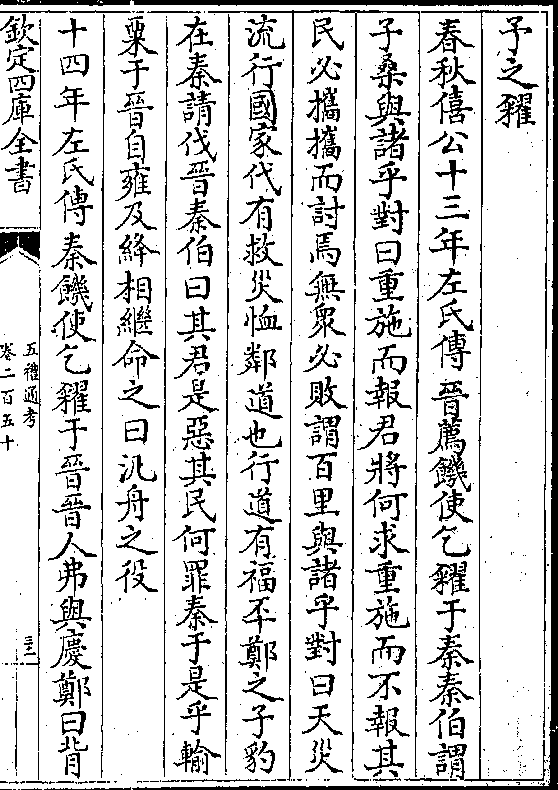 予之糴
春秋僖公十三年左氏傳晉薦饑使乞糴于秦秦伯謂
子桑與諸乎對曰重施而報君將何求重施而不報其
民必攜攜而討焉無衆必敗謂百里與諸乎對曰天災
流行國家代有救災恤鄰道也行道有福丕鄭之子豹
在秦請伐晉秦伯曰其君是惡其民何罪秦于是乎輸
粟于晉自雍及絳相繼命之曰汎舟之役
十四年左氏傳秦饑使乞糴于晉晉人弗與慶鄭曰背
欽定四庫全書
五禮通考
卷二百五十
三十二